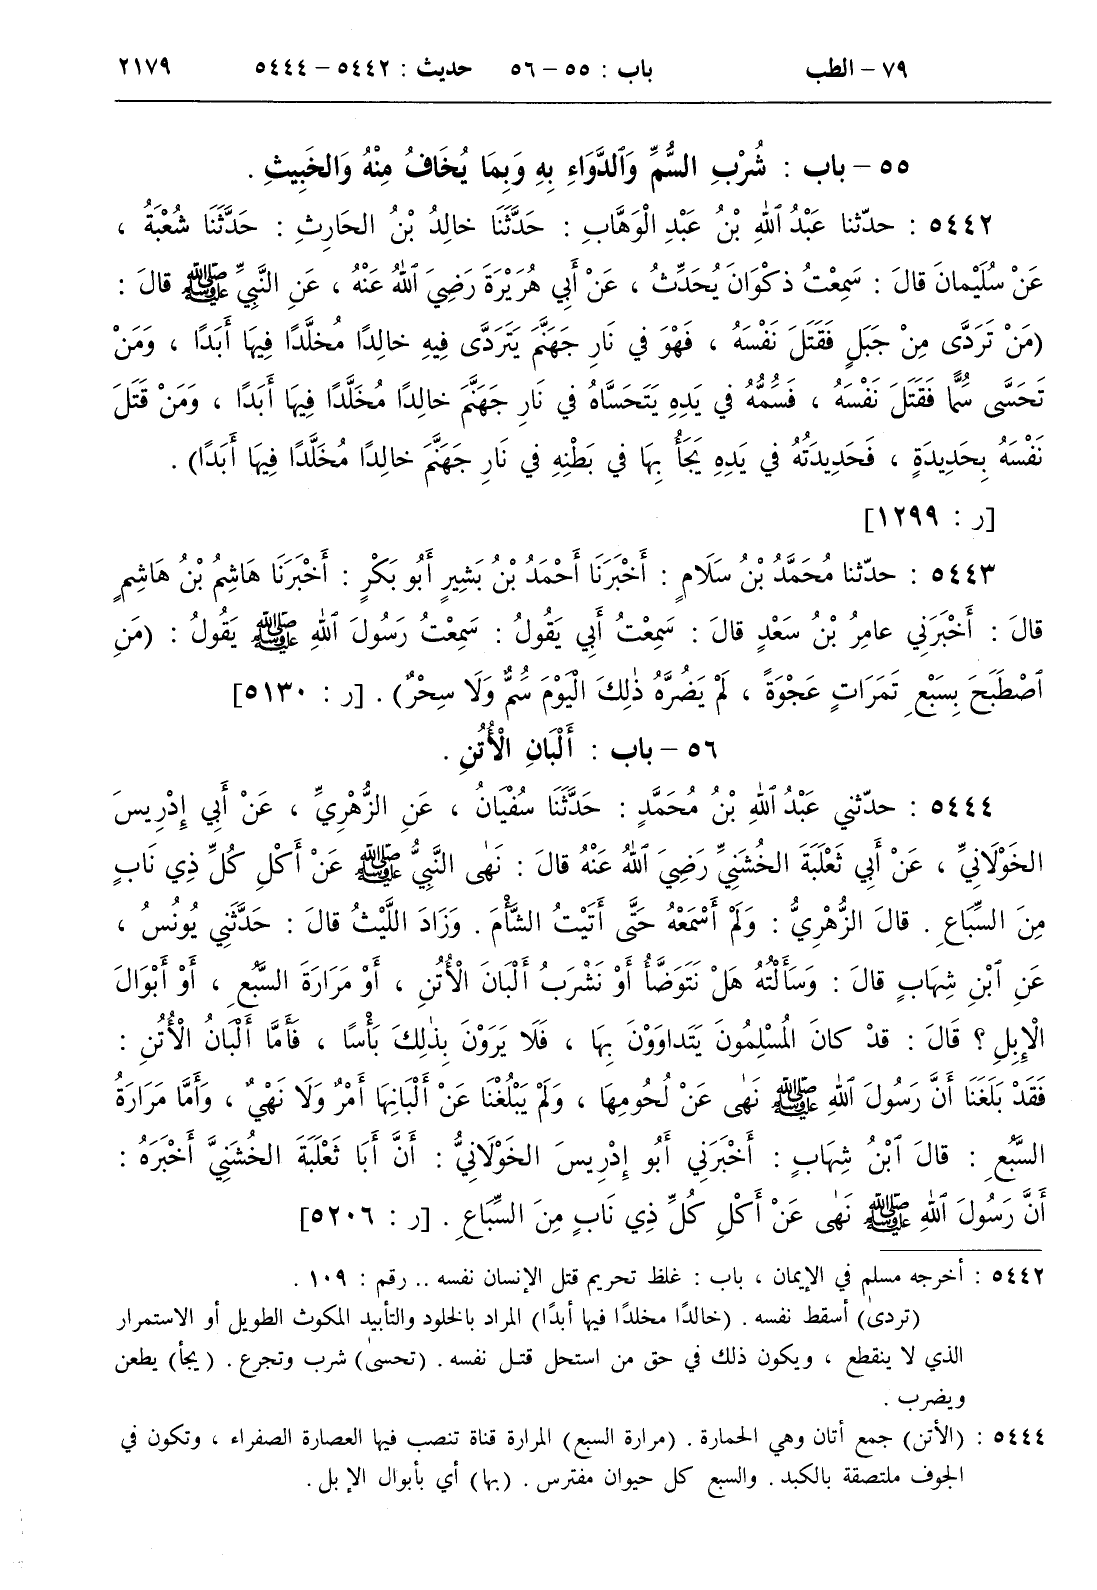 ٧٩ – الطب باب : ٥٥ – ٥٦ حديث : ٥٤٤٢ – ٥٤٤٤ ٢١٧٩
٥٥ – باب : شُرْبِ السُّمِّ وَٱلدَّوَاءِ بِهِ وَبِمَا يُخَافُ مِنْهُ وَالخَبِيثِ .
٥٤٤٢ : حدّثنا عَبْدُ ٱللهِ بْنُ عَبْدِ الْوَهَّابِ : حَدَّثَنَا خالِدُ بْنُ الحَارِثِ : حَدَّثَنَا شُعْبَةُ ،
عَنْ سُلَيْمانَ قالَ : سَمِعْتُ ذَكْوَانَ يُحَدِّثُ ، عَنْ أَبِي هُرَيْرَةَ رَضِيَ ٱللهُ عَنْهُ ، عَنِ النَّبِيِّ ﷺ قالَ :
(مَنْ تَرَدَّى مِنْ جَبَلٍ فَقَتَلَ نَفْسَهُ ، فَهْوَ فِي نَارِ جَهَنَّمَ يَتَرَدَّى فِيهِ خالِدًا مُخَلَّدًا فِيهَا أَبَدًا ، وَمَنْ
تَحَسَّى سُمًّا فَقَتَلَ نَفْسَهُ ، فَسُمُّهُ فِي يَدِهِ يَتَحَسَّاهُ فِي نَارِ جَهَنَّمَ خالِدًا مُخَلَّدًا فِيهَا أَبَدًا ، وَمَنْ قَتَلَ
نَفْسَهُ بِحَدِيدَةٍ ، فَحَدِيدَتُهُ فِي يَدِهِ يَجَأُ بِهَا فِي بَطْنِهِ فِي نَارِ جَهَنَّمَ خالِدًا مُخَلَّدًا فِيهَا أَبَدًا) .
[ر : ١٢٩٩]
٥٤٤٣ : حدّثنا مُحَمَّدُ بْنُ سَلَامٍ : أَخْبَرَنَا أَحْمَدُ بْنُ بَشِيرٍ أَبُو بَكْرٍ : أَخْبَرَنَا هَاشِمُ بْنُ هَاشِمٍ
قالَ : أَخْبَرَنِي عامِرُ بْنُ سَعْدٍ قالَ : سَمِعْتُ أَبِي يَقُولُ : سَمِعْتُ رَسُولَ ٱللهِ ﷺ يَقُولُ : (مَنِ
ٱصْطَبَحَ بِسَبْعِ تَمَرَاتٍ عَجْوَةً ، لَمْ يَضُرَّهُ ذٰلِكَ الْيَوْمَ سُمٌّ وَلَا سِحْرٌ) . [ر : ٥١٣٠]
٥٦ – باب : أَلْبَانِ الْأُتُنِ .
٥٤٤٤ : حدّثني عَبْدُ ٱللهِ بْنُ مُحَمَّدٍ : حَدَّثَنَا سُفْيَانُ ، عَنِ الزُّهْرِيِّ ، عَنْ أَبِي إِدْرِيسَ
الخَوْلَانِيِّ ، عَنْ أَبِي ثَعْلَبَةَ الخُشَنِيِّ رَضِيَ ٱللهُ عَنْهُ قالَ : نَهٰى النَّبِيُّ ﷺ عَنْ أَكْلِ كُلِّ ذِي نَابٍ
مِنَ السِّبَاعِ . قالَ الزُّهْرِيُّ : وَلَمْ أَسْمَعْهُ حَتَّى أَتَيْتُ الشَّأْمَ . وَزَادَ اللَّيْثُ قالَ : حَدَّثَنِي يُونُسُ ،
عَنِ ٱبْنِ شِهَابٍ قالَ : وَسَأَلْتُهُ هَلْ نَتَوَضَّأُ أَوْ نَشْرَبُ أَلْبَانَ الْأُتُنِ ، أَوْ مَرَارَةَ السَّبُعِ ، أَوْ أَبْوَالَ
الْإِبِلِ ؟ قَالَ : قَدْ كانَ المُسْلِمُونَ يَتَدَاوَوْنَ بِهَا ، فَلَا يَرَوْنَ بِذٰلِكَ بَأْسًا ، فَأَمَّا أَلْبَانُ الْأُتُنِ :
فَقَدْ بَلَغَنَا أَنَّ رَسُولَ ٱللهِ ﷺ نَهٰى عَنْ لُحُومِهَا ، وَلَمْ يَبْلُغْنَا عَنْ أَلْبَانِهَا أَمْرٌ وَلَا نَهْيٌ ، وَأَمَّا مَرَارَةُ
السَّبُعِ : قالَ ٱبْنُ شِهَابٍ : أَخْبَرَنِي أَبُو إِدْرِيسَ الخَوْلَانِيُّ : أَنَّ أَبَا ثَعْلَبَةَ الخُشَنِيَّ أَخْبَرَهُ :
أَنَّ رَسُولَ ٱللهِ ﷺ نَهٰى عَنْ أَكْلِ كُلِّ ذِي نَابٍ مِنَ السِّبَاعِ . [ر : ٥٢٠٦]
٥٤٤٢ : أخرجه مسلم في الإيمان ، باب : غلظ تحريم قتل الإنسان نفسه .. رقم : ١٠٩ .
(تردىٰ) أسقط نفسه . (خالدًا مخلدًا فيها أبدًا) المراد بالخلود والتأبيد المكوث الطويل أو الاستمرار
الذي لا ينقطع ، ويكون ذلك في حق من استحل قتل نفسه . (تحسىٰ) شرب وتجرع . (يجأ) يطعن
ويضرب .
٥٤٤٤ : (الأتن) جمع أتان وهي الحمارة . (مرارة السبع) المرارة قناة تنصب فيها العصارة الصفراء ، وتكون في
الجوف ملتصقة بالكبد . والسبع كل حيوان مفترس . (بها) أي بأبوال الإبل .